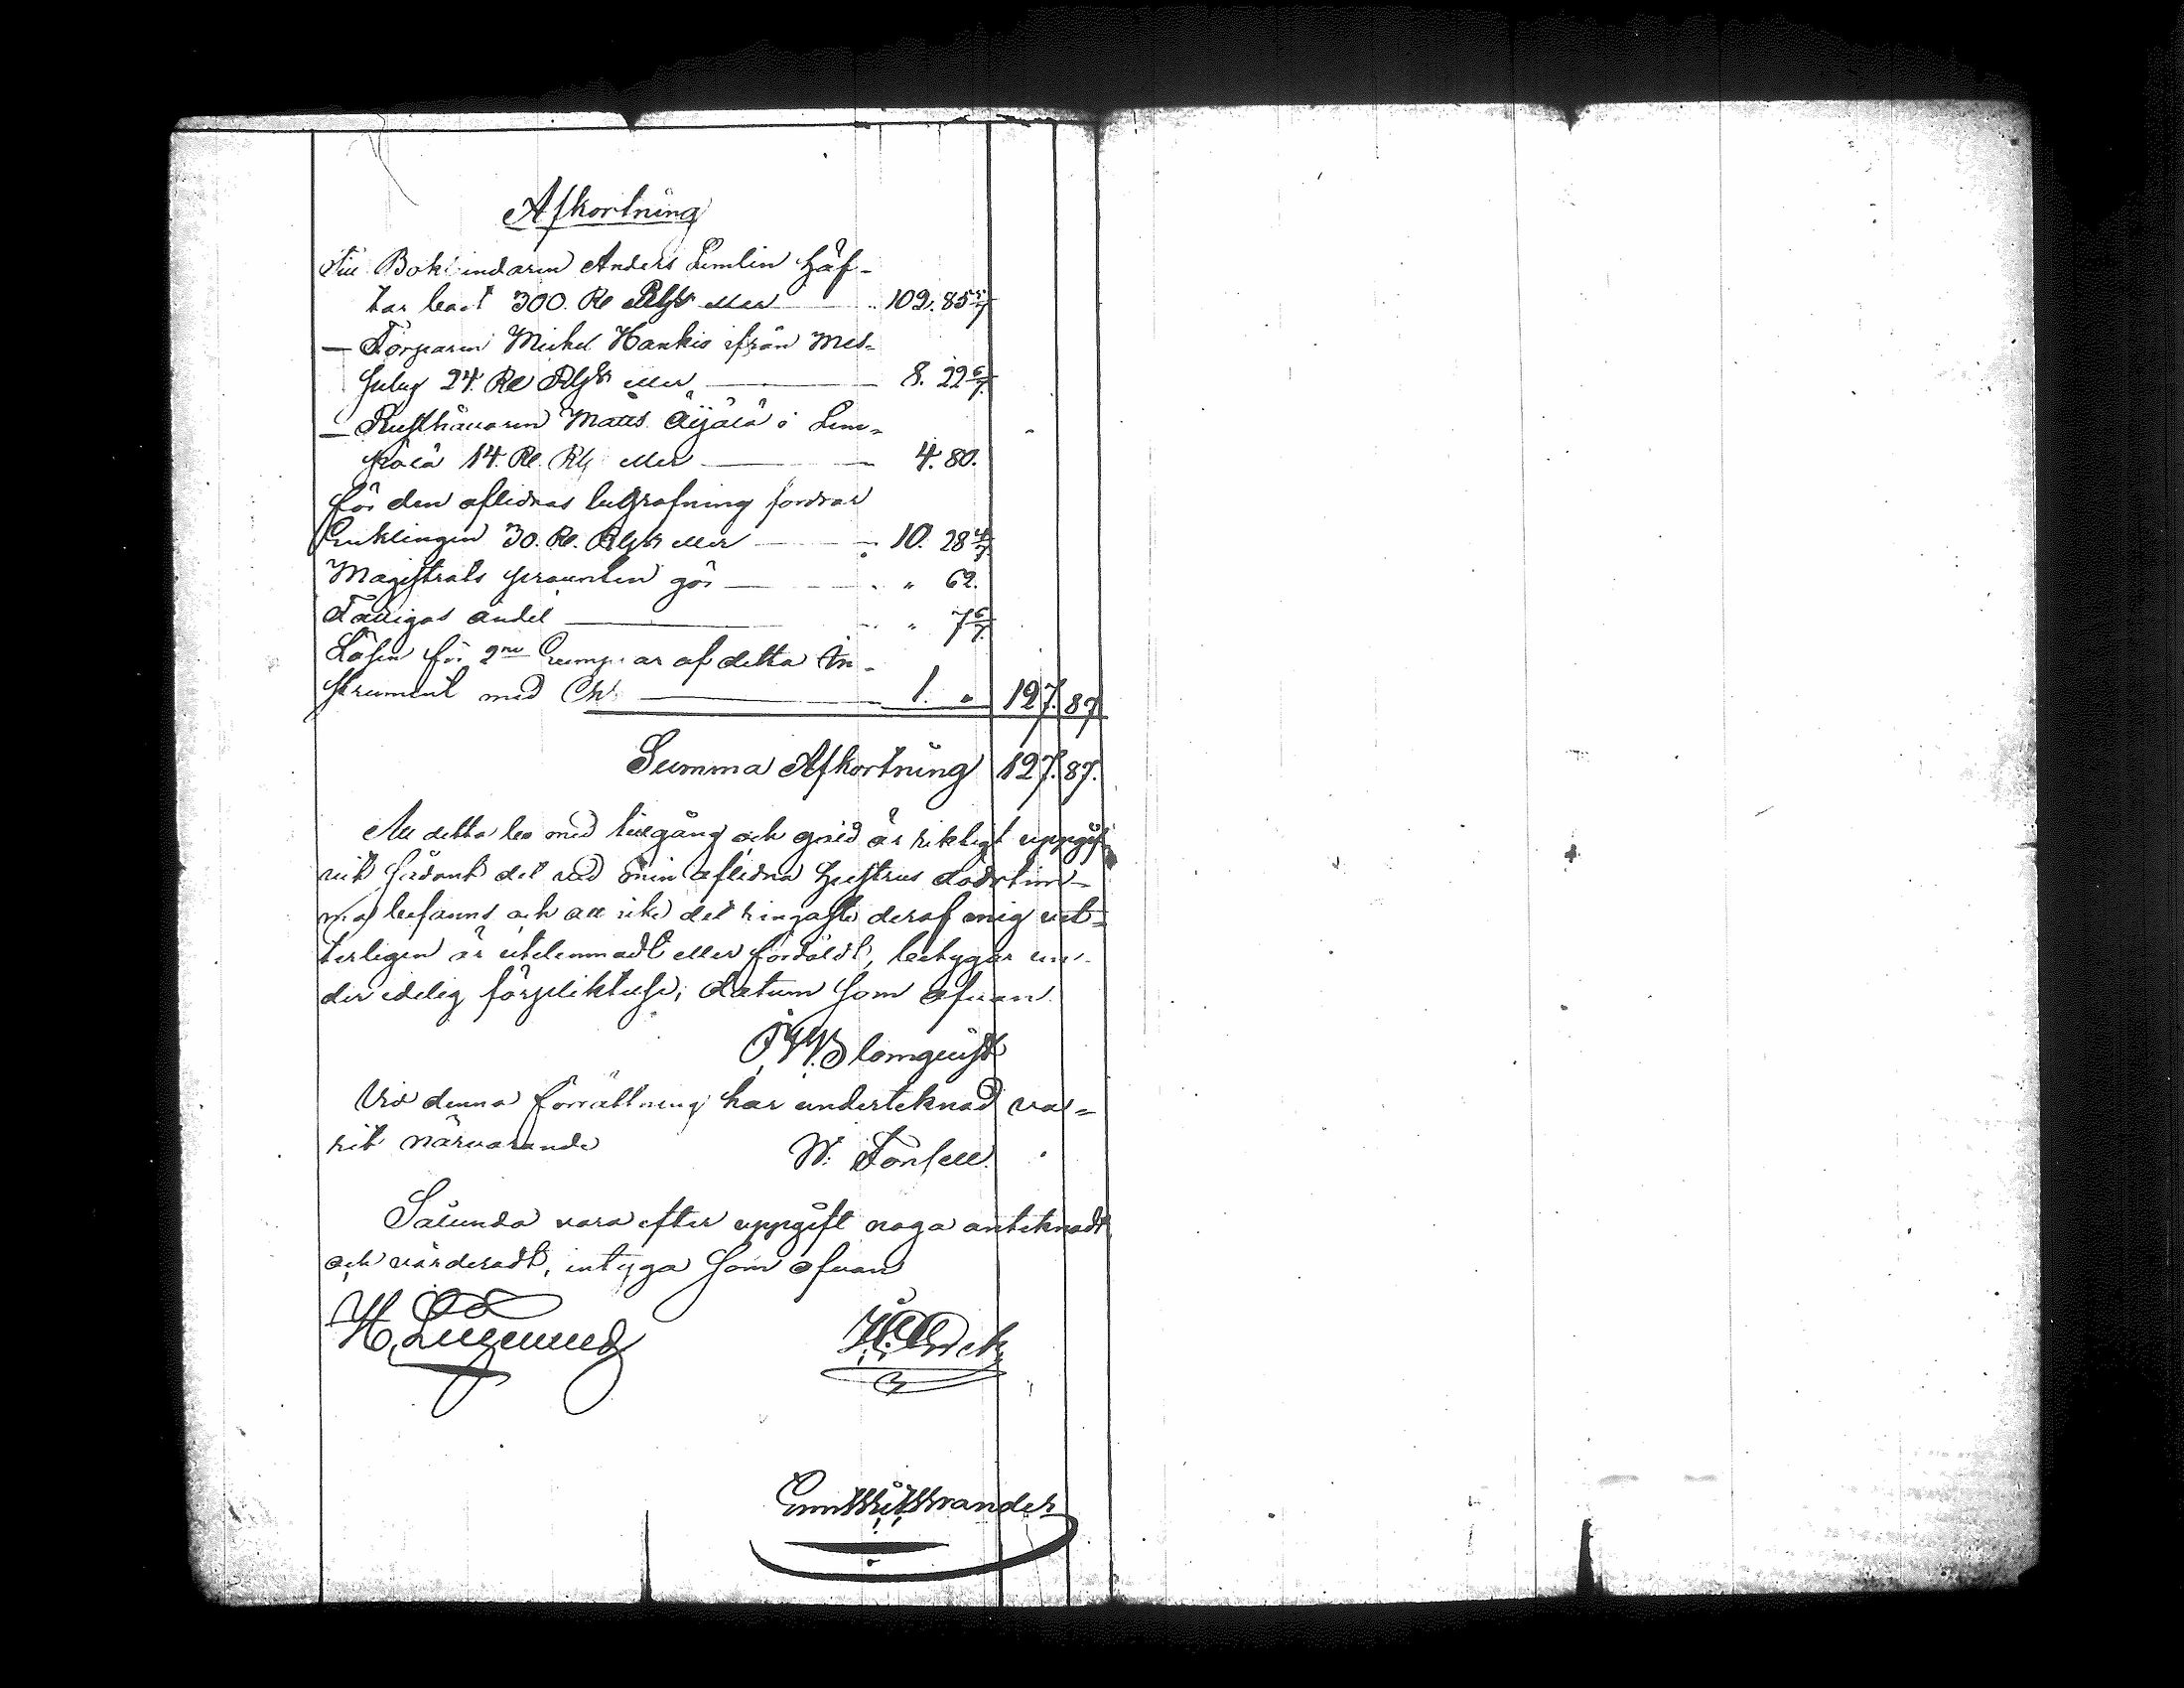 Afkortning
Till Bokbindaren Anders Limlin häf-
tar 300. R Rgs eller 102. 85 5/7
— Torparen Michel Hankis ifrån Mes-
suby 24. R Rgs eller 8. 22 6/7
— Rusthållaren Matts Äijälä i Lem-
14. R. Rgs eller 4. 80.
för den aflidnas begrafning fordrar
Enklingen 30. R. Rgs eller 10. 28 4/7
Magistrats gör " 62.
Fattigas andel " 7 6/7
Lösen för 2ne Exemplar af detta In-
strument med Ch 1. " 127. 87
Summa Afkortning 127. 87.
At detta bo med tillgång och gäld är riktigt uppgif-
vit sådant det vid min aflidna hustrus dödstim-
ma befanns och att icke det ringaste deraf mig vet-
terligen är utelemnadt eller fördöldt, betygar un-
der edelig förpliktelse; datum som ofvan.
Blomquist
Vid denna förrättning har undertecknad va-
rit närvarande
W. Forsell.
Sålunda vara efter uppgift noga antecknadt
och värderadt, intyga som ofvan